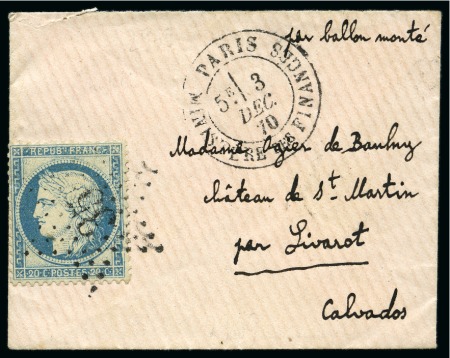 par ballon monté
PARIS
MINISTÈRE DES FINANCES
5E/ 3
DEC.
70
Madame Ozier de Baulny
château de St Martin
par Livarot
Calvados
REPUB. FRANC.
20 C. POSTES 20 C.